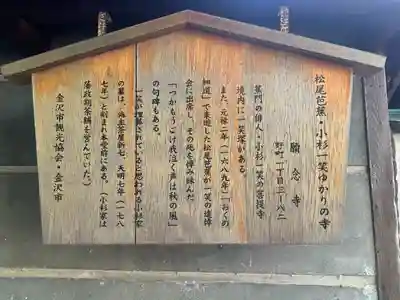 松尾芭蕉・小杉一笑ゆかりの寺
願念寺
野町一丁目三―八二
蕉門の俳人・小杉一笑の菩提寺
境内に一笑塚がある。
また、元禄二年(一六八九年)「おくの
細道」で来遊した松尾芭蕉が一笑の追悼
会に出席し、その死を悼み詠んだ
「つかもうごけ我泣く声は秋の風」
の句碑もある。
一笑が埋葬されていると思われる小杉家
の墓は、海生茶屋新七、天明七年(一七八
七年)と刻まれ本堂前にある。(小杉家は
藩政期茶舗を営んでいた)
金沢市観光協会・金沢市